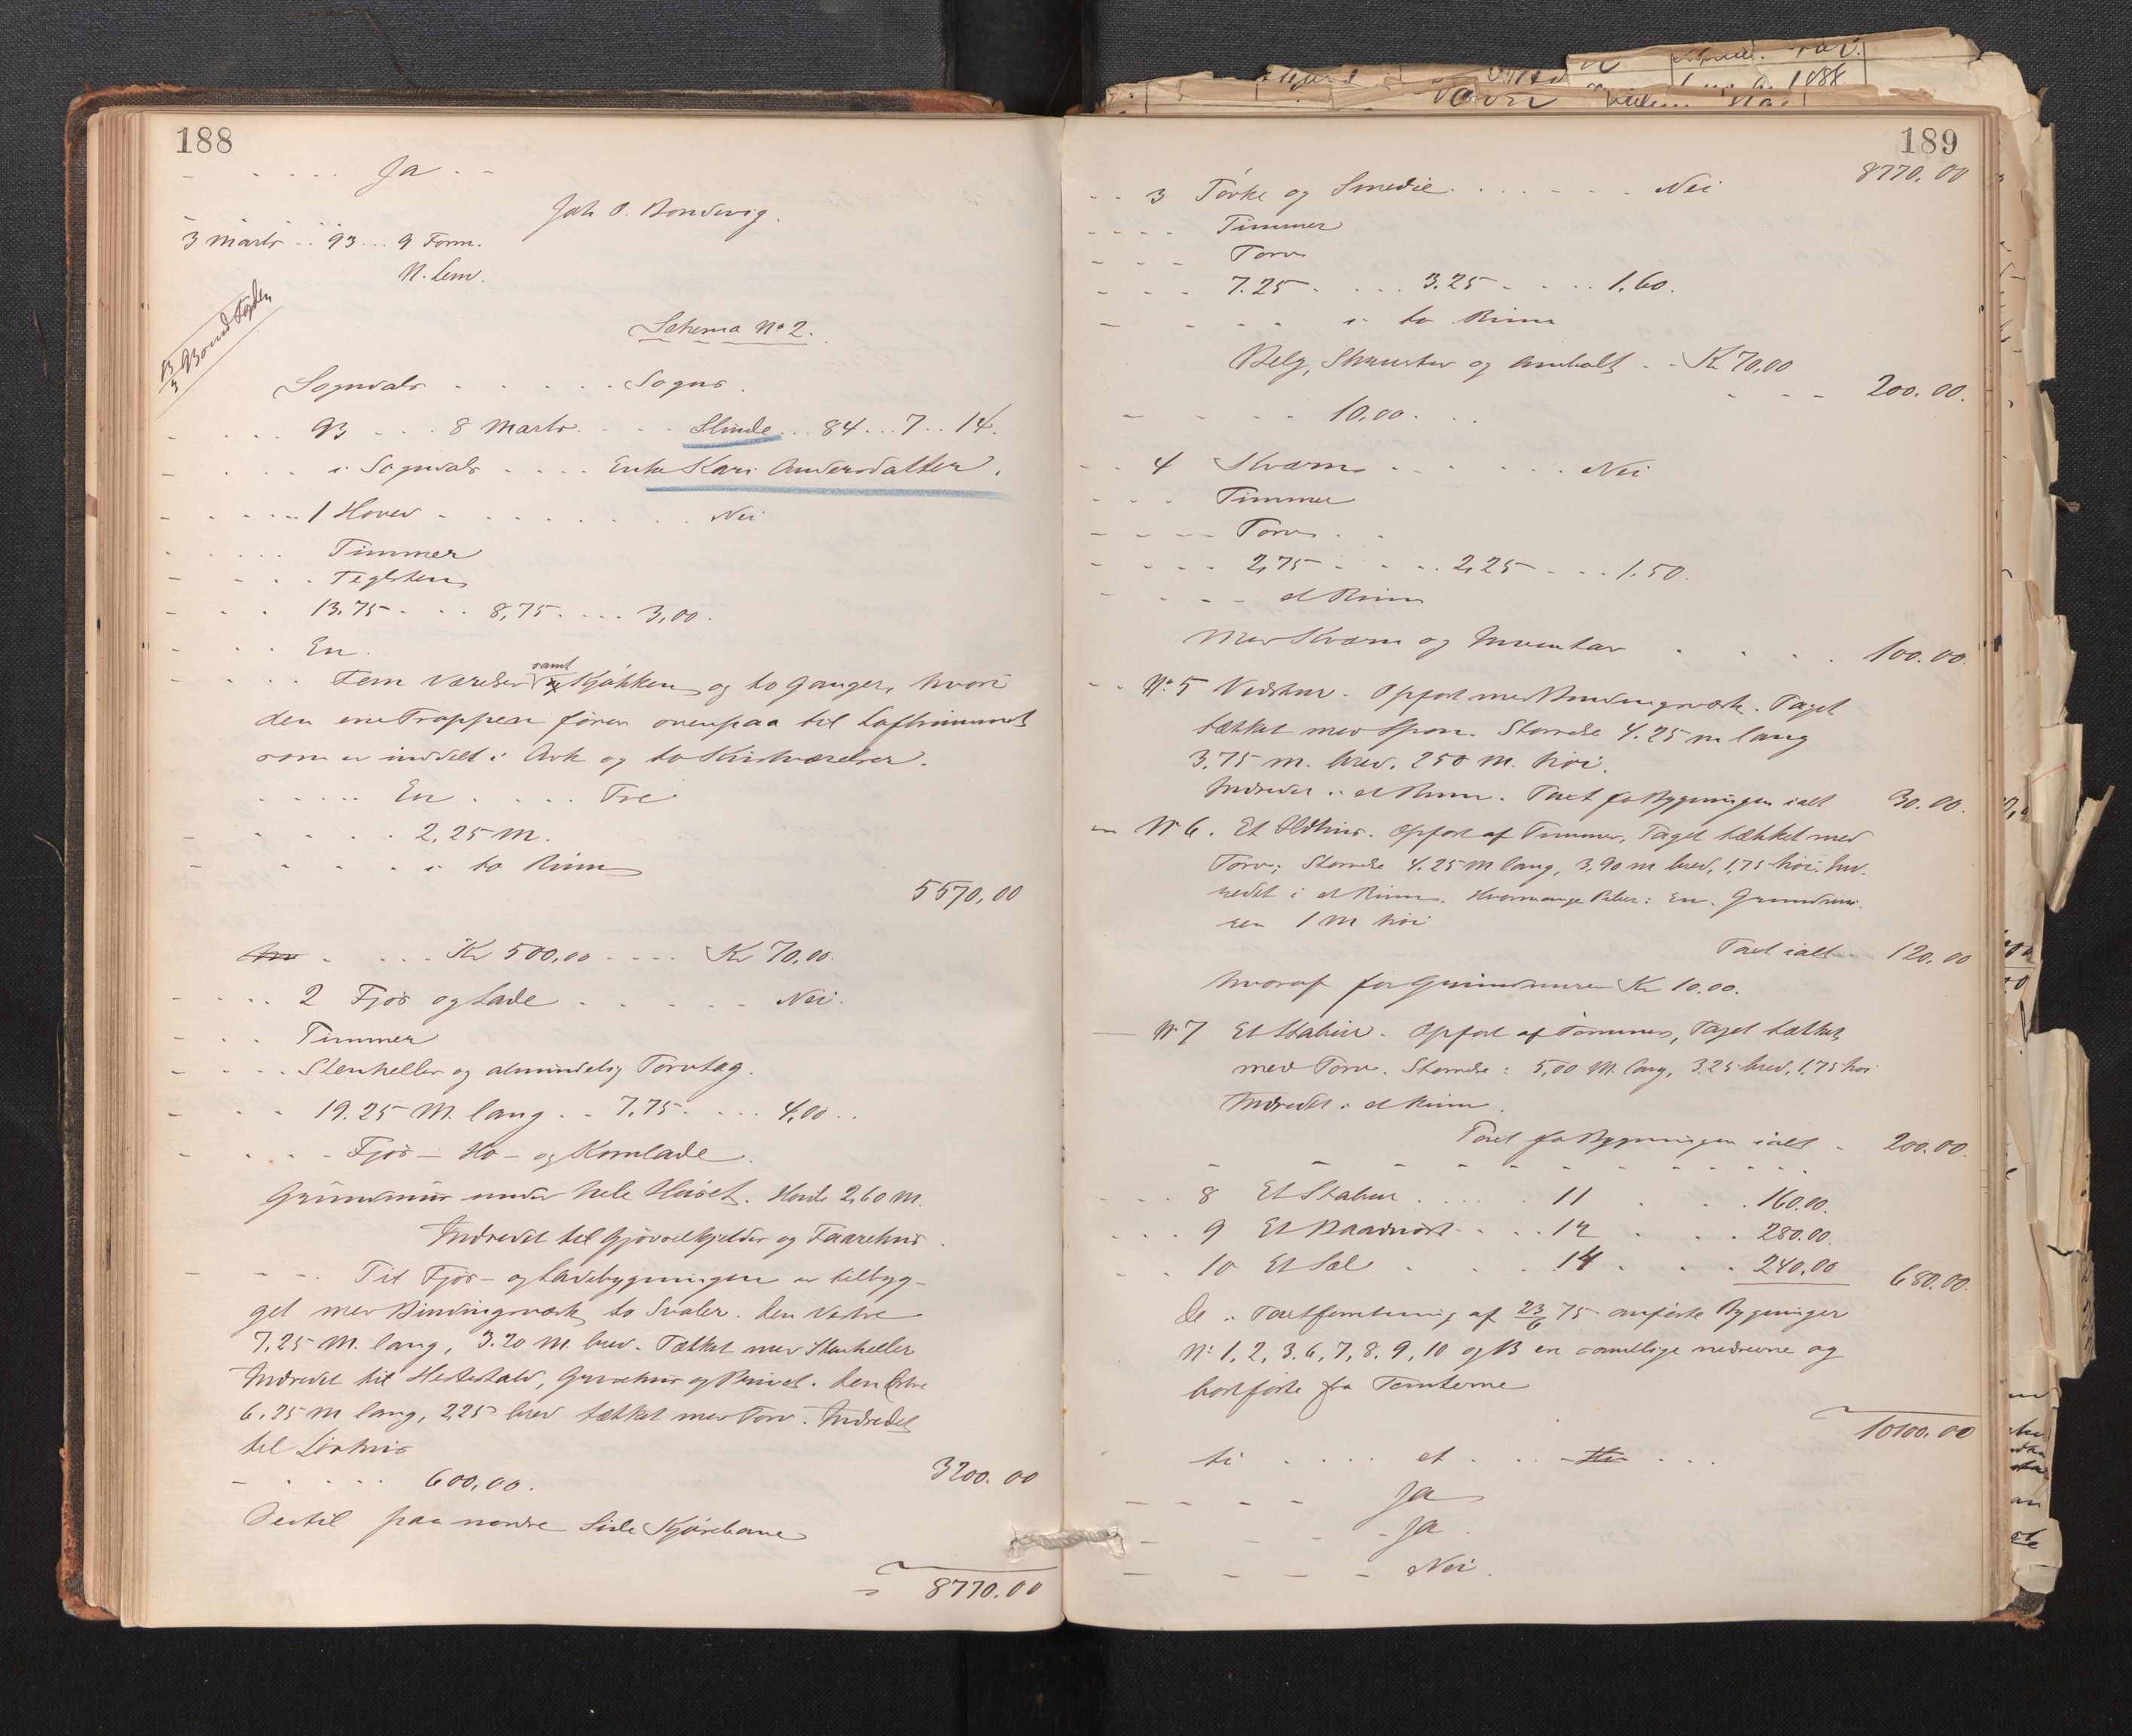 188
- . . . . Ja . -
Joh O. Bondevig.
3 Marts .. 93 .. 9 Form.
N. Lem.
Schema No 2.
Sogndals . . . . . Sogns .
- . . . 93 . . . 8 Marts . . . . Slinde .. 84 .. 7 .. 14.
- . . . i Sogndals . . . . Enke Kari Andersdatter.
- . . . . 1 Hoved . . . . . . . . Nei
. . . . . Timmer
- . . . Teglsten
- . . 13.75 . . . 8,75 . . . . 3,00 .
- . . En .
- . . . Fem Værelser samt Kjøkken og to Ganger, hvori
den ene Trappen fører ovenpaa til Loftsrummet
som er inddelt i Ark og to Kvistværelser.
. . . . . En . . . . Tre
- . . . . 2,25 M.
- . . . . i to Rum
5570,00
. . . . Kr 500,00 . . . . Kr 70,00.
- . . . 2 Fjøs og Lade . . . . . . Nei.
- . . Timmer
- . . . Stenheller og almindelig Torvtag.
- . . 19.25 M. lang . . 7,75 . . . . 4,00 . .
- . . . Fjøs - Ho - og Kornlade.
Grundmur under hele Huset. Høide 2,60 M.
Indredet til Gjødselkjelder og Faarehus.
- - - . Til Fjøs- og Ladebygningen er tilbyg-
get med Bindingsværk to Svaler. Den Vestre
7,25 M. lang, 3.20 M. bred. Tækket med Stenheller
Indredet til Hestestald, og Privet. Den Østre
6,25 M lang, 2,25 bred tækket med Torv. Indredet
til Løvhus
- . . . . . 600,00.
3200.00
Dertil paa nordre Side Kjørebane
8770.00
189
8770.00
- - 3 Tørke og Smedie . . . . . . . Nei
. . . . Timmer
- - - Torv
- - - 7.25 . . . . 3.25 . . . . 1,60.
- - - - i to Rum
Belg, Skruestik og Ambolt . . Kr 70,00
200.00.
- . . - 10,00 . . .
- - 4 Kværn . . . . . . . Nei
- - . Timmer
- - - - Torv . .
- . . . 2,75 . . . . 2,25 . . . 1,50.
- . - - et Rum
Med Kværn og Inventar . . . . 100.00.
- - No 5 Vedskur. Opført med Bindingsværk. Taget
tækket med Spon. Størrelse 4.25 m lang
3,75 m. bred. 250 M. høi.
Indredet i et Rum. Taxt for Bygningen ialt 30.00.
- No 6. Et Ildhus. Opført af Timmer, Taget tækket med
Torv; Størrelse 4.25 M lang, 3,90 m bred, 1,75 høi. Ind-
redet i et Rum. Hvormange Piber: En. Grundmu-
ren 1 M høi
Taxt ialt - 120.00
hvoraf for Grundmuren Kr 10.00.
- No 7 Et Stabur. Opført af Tømmer, Taget tækket
med Torv. Størrelse: 5,00 M. lang, 3.25 bred, 1,75 høi
Indredet i et Rum.
Taxt for Bygningen ialt - 200.00.
- - - - - - - - - - -
- - - 8 Et Stabur . . . . . 11 . . . 160.00.
. . . 9 Et Baadnøst . . . . 12 . . . 280.00.
. . 10 Et Sel . . . . 14 . . . 240.00
680.00.
De i Taxtforretning af 23/6 75 anførte Bygninger
No 1, 2, 3, 6, 7, 8, 9, 10 og 13 er samtlige nedrevne og
bortførte fra Tomterne
10100.00
ti . . . . et . . . . . .
- - - - Ja
- - - Ja .
- - - - Nei .